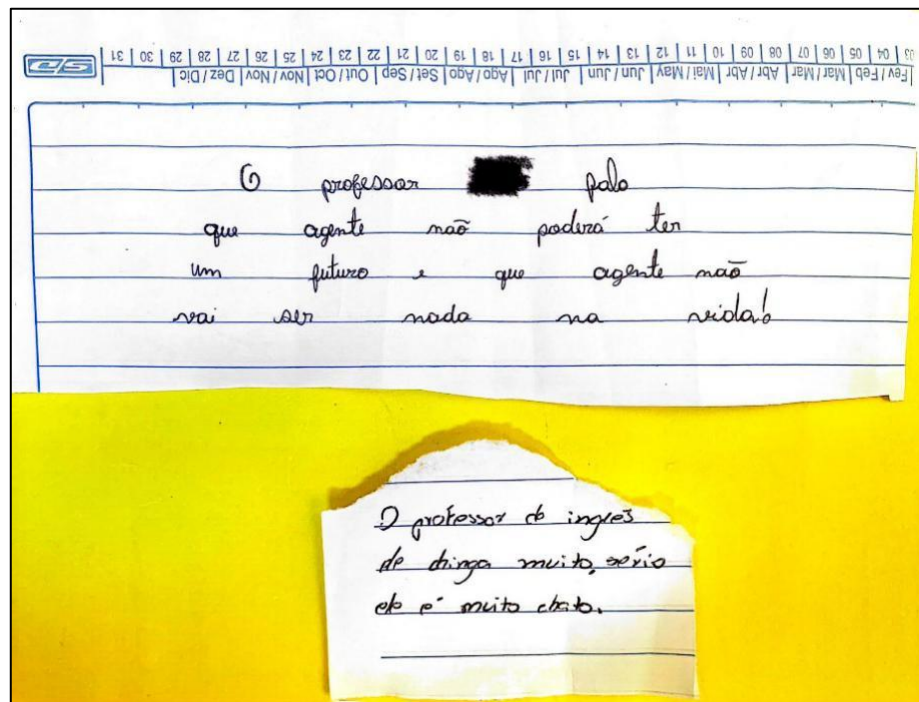 Fev / Feb | Mar / Mar | Abr / Abr | Mai / May | Jun / Jun | Jul / Jul | Ago / Ago | Set / Sep | Out / Oct | Nov / Nov | Dez / Dic
03 | 04 | 05 | 06 | 07 | 08 | 09 | 10 | 11 | 12 | 13 | 14 | 15 | 16 | 17 | 18 | 19 | 20 | 21 | 22 | 23 | 24 | 25 | 26 | 27 | 28 | 29 | 30 | 31
O professor falo
que agente não poderá ter
um futuro e que agente não
vai ser nada na vida!
O professor de ingres
ele chinga muito, sério
ele é muito chato.